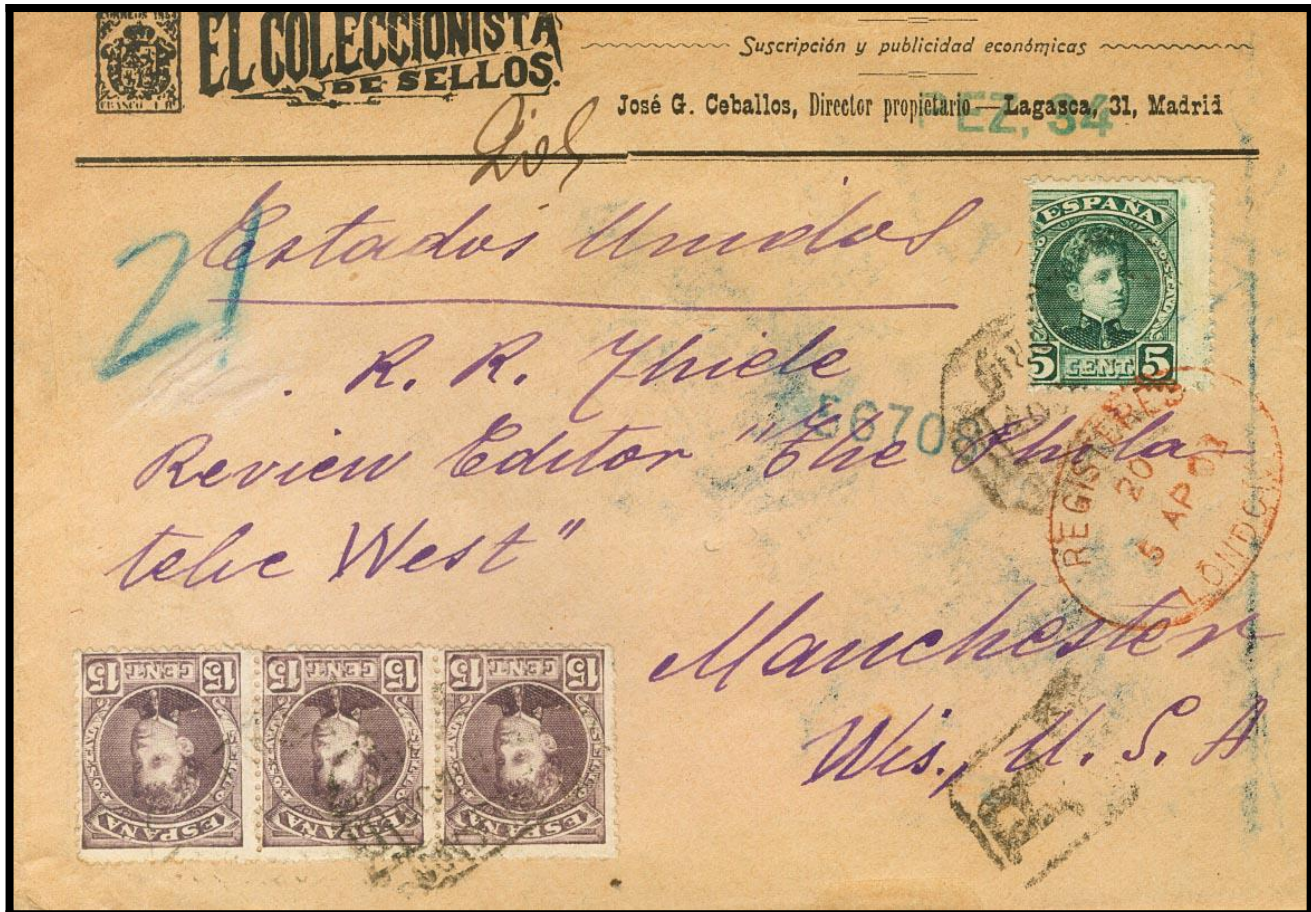 CORREOS 1854
FRANCO 1 R
EL COLECCIONISTA
DE SELLOS.
Suscripción y publicidad económicas
José G. Ceballos, Director propietario — Lagasca, 31, Madrid
PEZ, 34
21
Estados Unidos
R. R. Thiele
Review Editor "The Phila-
telic West"
Manchester
Wis., U. S. A
5670
ESPAÑA
5 CENT 5
REGISTERED
20
5 AP 01
LONDON
R
15 CENT. 15
ESPAÑA
15 CENT. 15
ESPAÑA
15 CENT. 15
ESPAÑA